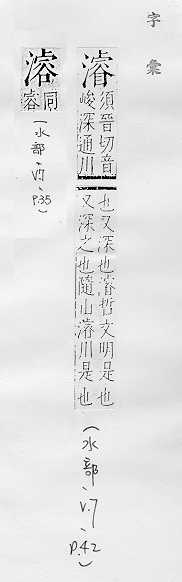 字彙
濬
須晉切音
峻深通川
也又深也濬哲文明是也
又深之也隨山濬川是也
(水部、V.7、P.42)
同
(水部、V7、P.35)